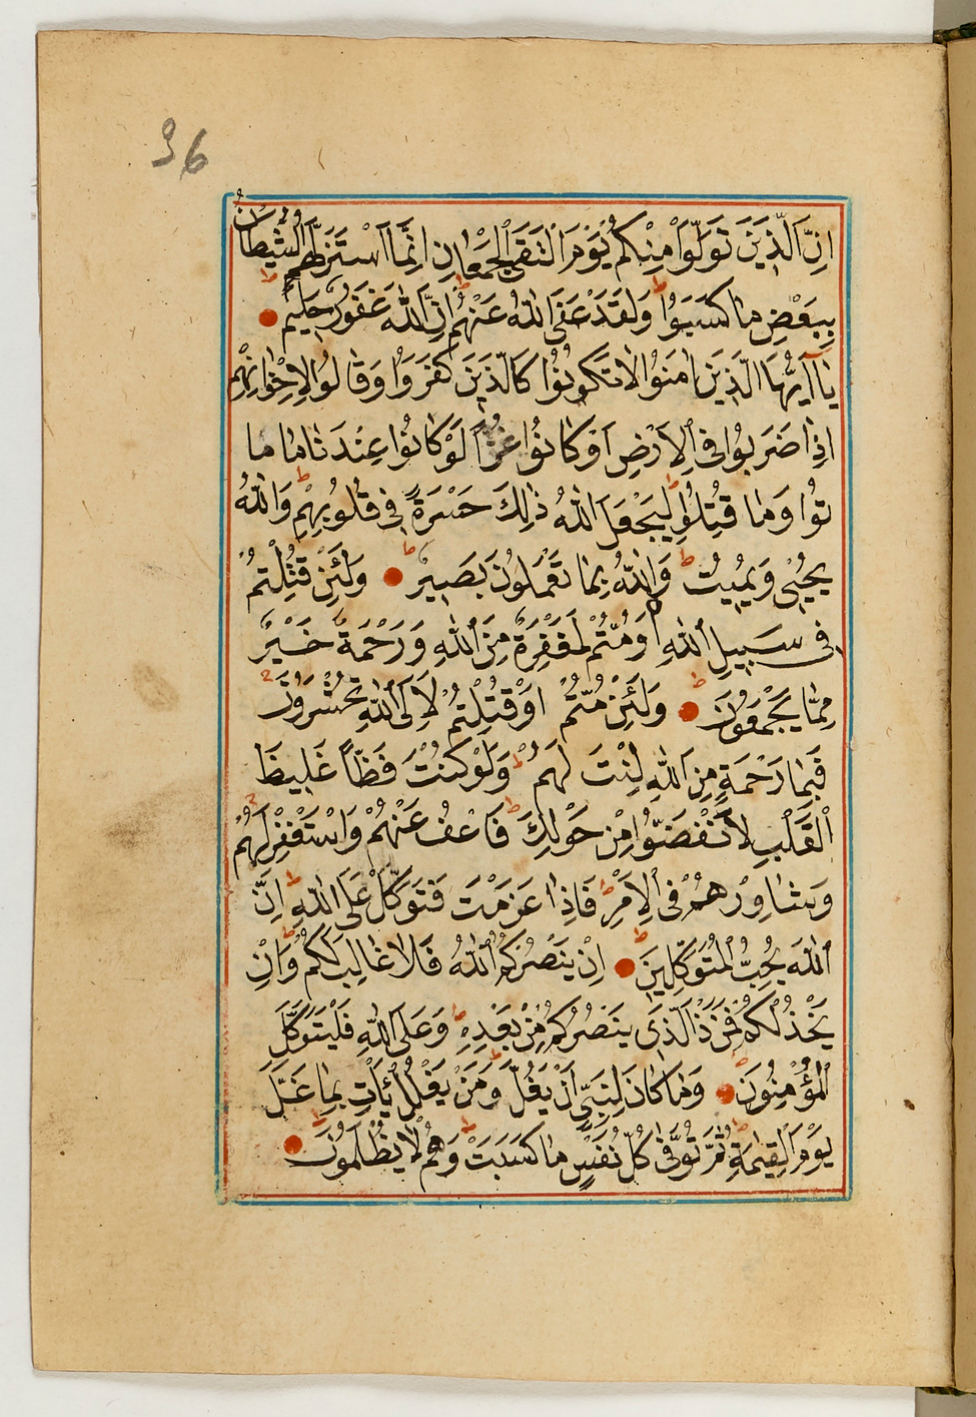 36
اِنَّ الَّذِيْنَ تَوَلَّوْا مِنْكُمْ يَوْمَ الْتَقَى الْجَمْعٰنِ اِنَّمَا اسْتَزَلَّهُمُ الشَّيْطٰانُ
بِبَعْضِ مٰا كَسَبُوْا وَلَقَدْ عَفَى اللّٰهُ عَنْهُمْ اِنَّ اللّٰهَ غَفُوْرٌ حَلِيْمٌ
يٰاۤ اَيُّهَا الَّذِيْنَ اٰمَنُوْا لَا تَكُوْنُوْا كَالَّذِيْنَ كَفَرُوْا وَقٰالُوْا لِاِخْوٰانِهِمْ
اِذٰا ضَرَبُوْا فِى الْاَرْضِ اَوْ كٰانُوْا غُزًّا لَوْ كٰانُوْا عِنْدَنٰا مٰا مٰا
تُوْا وَمٰا قُتِلُوْا لِيَجْعَلَ اللّٰهُ ذٰلِكَ حَسْرَةً فِى قُلُوْبِهِمْ وَاللّٰهُ
يُحْيٖى وَيُمِيْتُ وَاللّٰهُ بِمٰا تَعْمَلُوْنَ بَصِيْرٌ وَلَئِنْ قُتِلْتُمْ
فِى سَبِيْلِ اللّٰهِ اَوْ مُتُّمْ لَمَغْفِرَةٌ مِنَ اللّٰهِ وَرَحْمَةٌ خَيْرٌ
مِمّٰا يَجْمَعُوْنَ وَلَئِنْ مُتُّمْ اَوْ قُتِلْتُمْ لَاِلَى اللّٰهِ تُحْشَرُوْنَ
فَبِمٰا رَحْمَةٍ مِنَ اللّٰهِ لِنْتَ لَهُمْ وَلَوْ كُنْتَ فَظًّا غَلِيْظَ
الْقَلْبِ لَانْفَضُّوْا مِنْ حَوْلِكَ فَاعْفُ عَنْهُمْ وَاسْتَغْفِرْ لَهُمْ
وَشٰاوِرْهُمْ فِى الْاَمْرِ فَاِذٰا عَزَمْتَ فَتَوَكَّلْ عَلَى اللّٰهِ اِنَّ
اللّٰهَ يُحِبُّ الْمُتَوَكِّلِيْنَ اِنْ يَنْصُرْكُمُ اللّٰهُ فَلَا غٰالِبَ لَكُمْ وَاِنْ
يَخْذُلْكُمْ فَمَنْ ذَا الَّذِى يَنْصُرُكُمْ مِنْ بَعْدِهٖ وَعَلَى اللّٰهِ فَلْيَتَوَكَّلِ
الْمُؤْمِنُوْنَ وَمٰا كٰانَ لِنَبِىٍّ اَنْ يَغُلَّ وَمَنْ يَغْلُلْ يَأْتِ بِمٰا غَلَّ
يَوْمَ الْقِيٰمَةِ ثُمَّ تُوَفّٰى كُلُّ نَفْسٍ مٰا كَسَبَتْ وَهُمْ لَا يُظْلَمُوْنَ